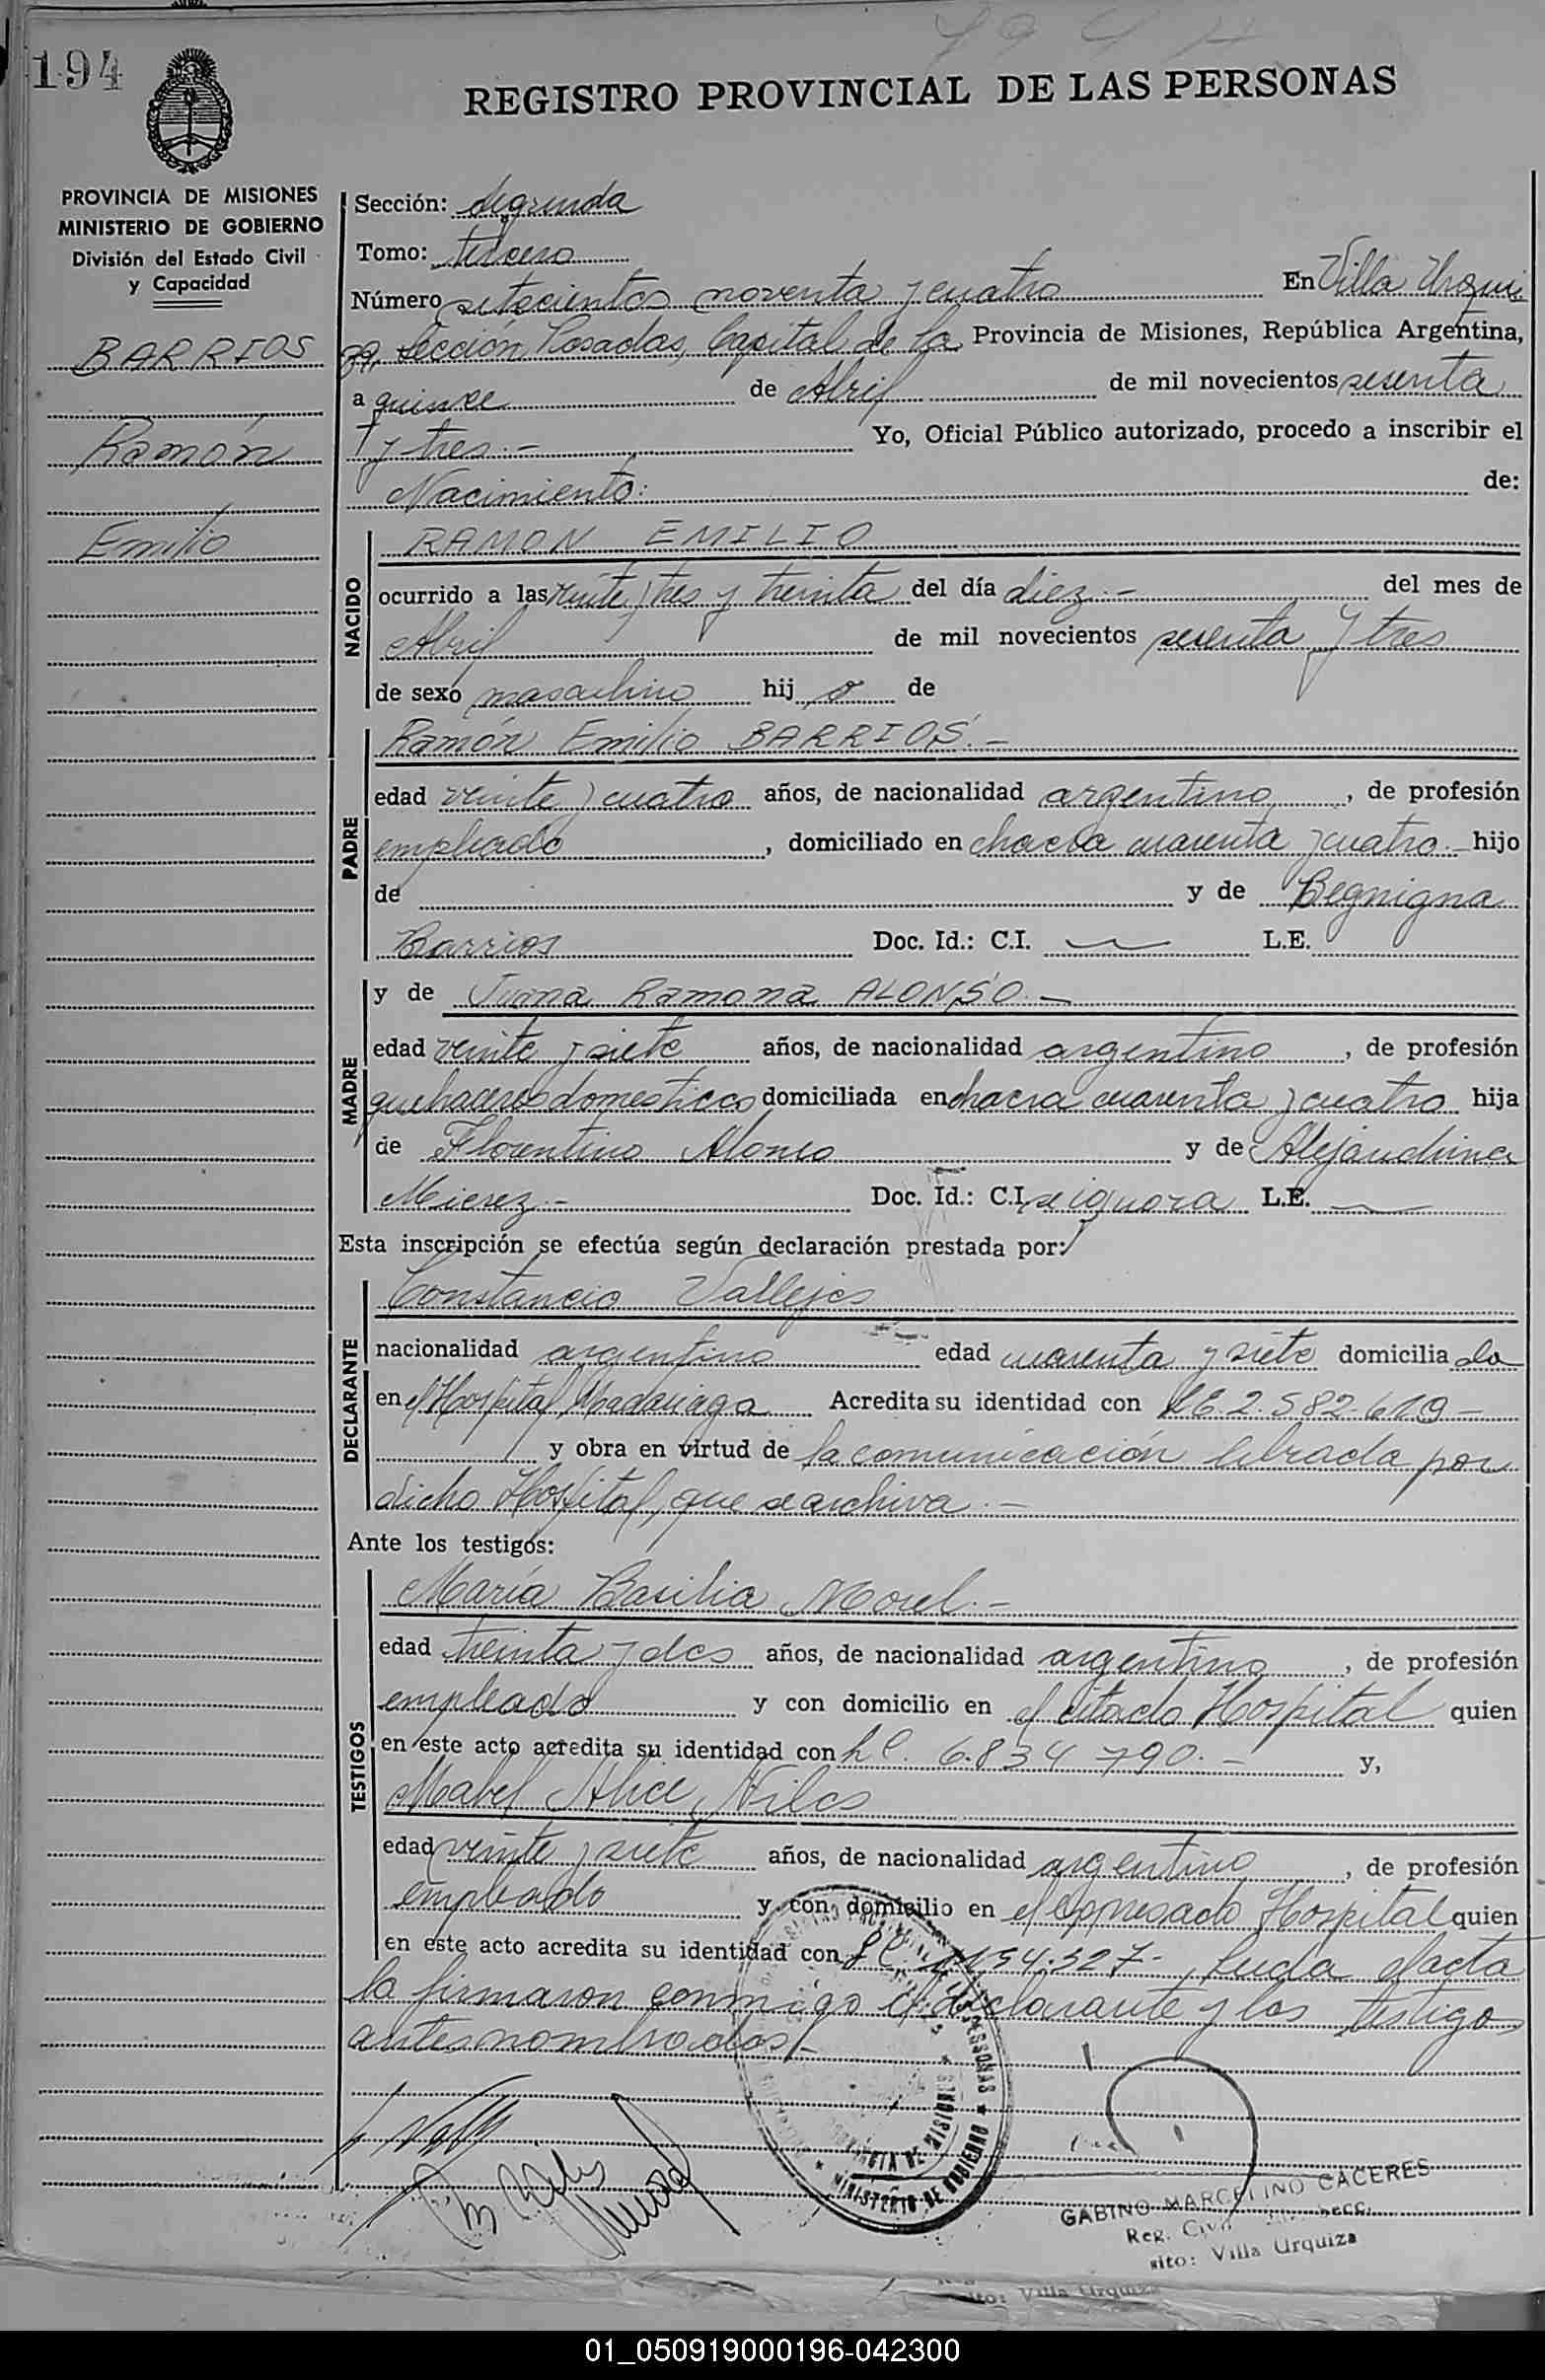 194
REGISTRO PROVINCIAL DE LAS PERSONAS
PROVINCIA DE MISIONES
MINISTERIO DE GOBIERNO
División del Estado Civil
y Capacidad
BARRIOS
Ramón
Emilio
Sección: Segunda
Tomo: tercero
Número setecientos noventa y cuatro En Villa Urqui
za, Sección Posadas, Capital de la Provincia de Misiones, República Argentina,
a quince de Abril de mil novecientos sesenta
y tres.- Yo, Oficial Público autorizado, procedo a inscribir el
Nacimiento: de:
NACIDO
RAMON EMILIO
ocurrido a las veinte y tres y treinta del día diez.- del mes de
Abril de mil novecientos sesenta y tres
de sexo masculino hij o de
PADRE
Ramón Emilio BARRIOS.-
edad veinte y cuatro años, de nacionalidad argentino, de profesión
empleado, domiciliado en chacra cuarenta y cuatro.- hijo
de y de Begnigna
Barrios Doc. Id.: C.I. L.E.
MADRE
y de Juana Ramona ALONSO.-
edad veinte y siete años, de nacionalidad argentino, de profesión
quehaceres domesticos domiciliada en chacra cuarenta y cuatro hija
de Florentino Alonso y de Alejandrina
Mierez.- Doc. Id.: C.I. se ignora L.E.
Esta inscripción se efectúa según declaración prestada por:
DECLARANTE
Constancio Vallejos
nacionalidad argentino edad cuarenta y siete domicilia do
en el Hospital Madariaga Acredita su identidad con LE. 2.582.619-
y obra en virtud de la comunicación librada por
dicho Hospital, que se archiva.-
Ante los testigos:
TESTIGOS
María Basilia Morel.-
edad treinta y dos años, de nacionalidad argentino, de profesión
empleado y con domicilio en el citado Hospital quien
en este acto acredita su identidad con L.C. 6.834 790.- y,
Mabel Alice Nilos
edad veinte y siete años, de nacionalidad argentino, de profesión
empleado y con domicilio en el expresado Hospital quien
en este acto acredita su identidad con L.C. 154.327- Leida el acta
la firmaron conmigo el declarante y los testigos
antes nombrados/-
PROVINCIA DE MISIONES
MINISTERIO DE GOBIERNO
GABINO MARCELINO CACERES
Reg. Civil Secc.
sito: Villa Urquiza
sito: Villa Urquiza
01_050919000196-042300